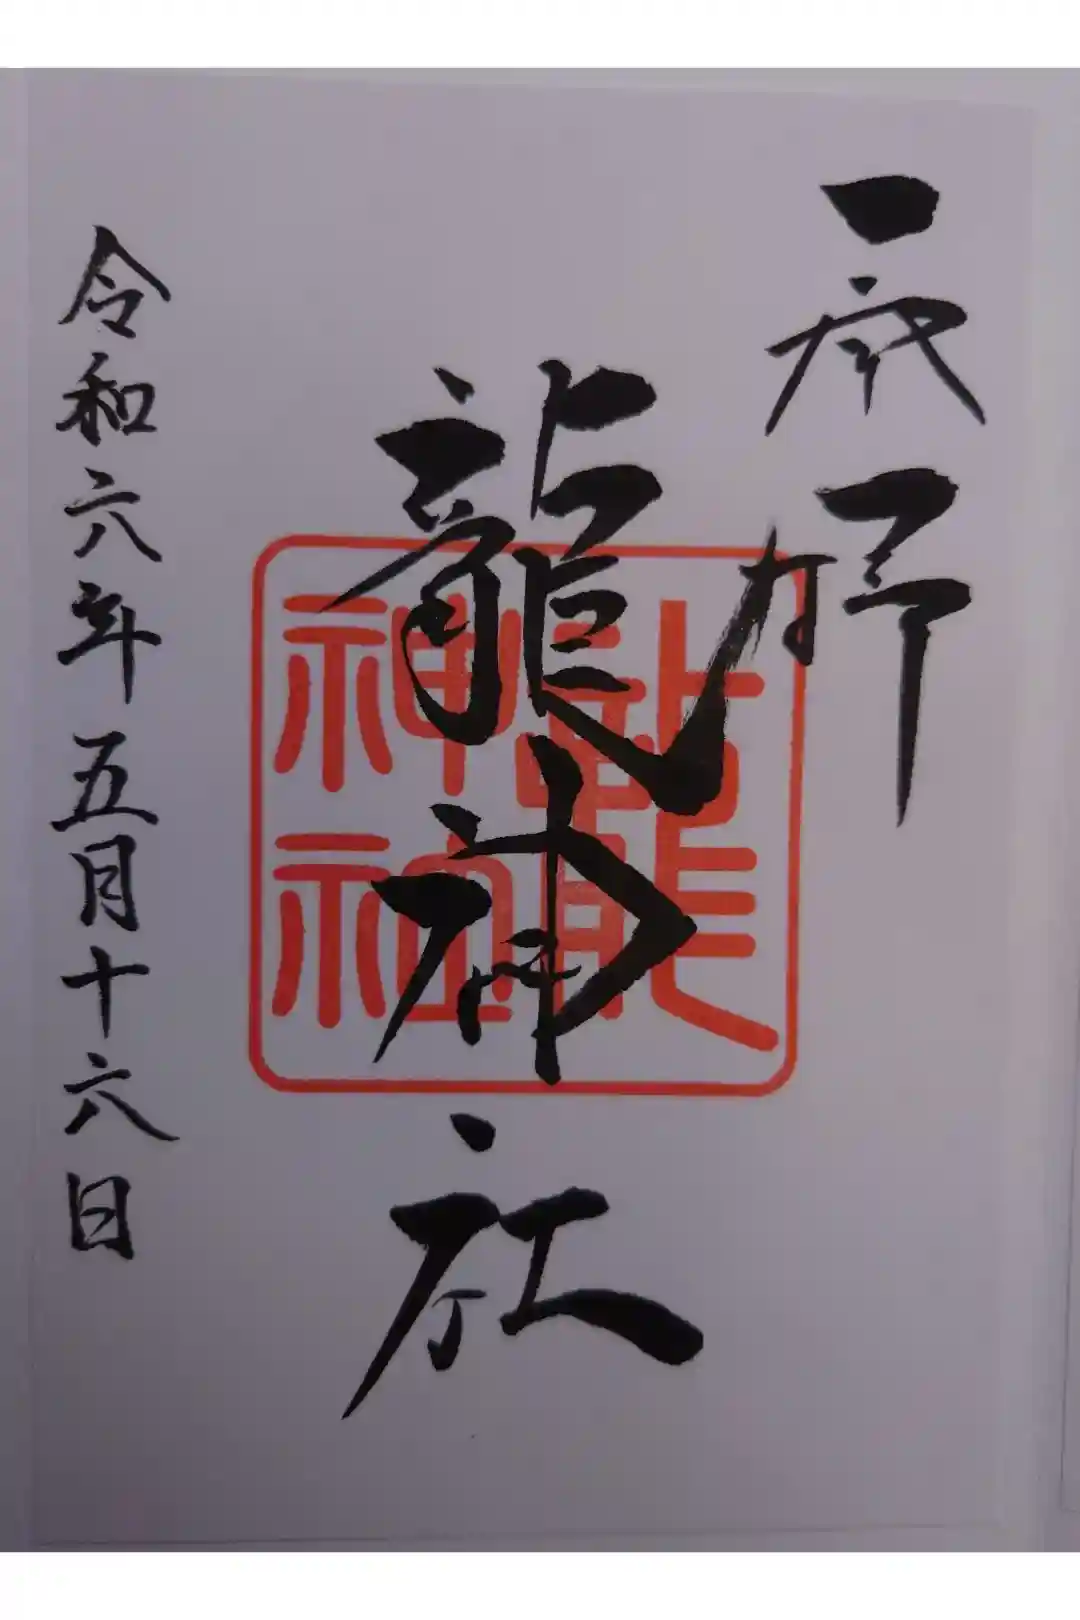 奉拝
龍神社
龍神社
令和六年五月十六日